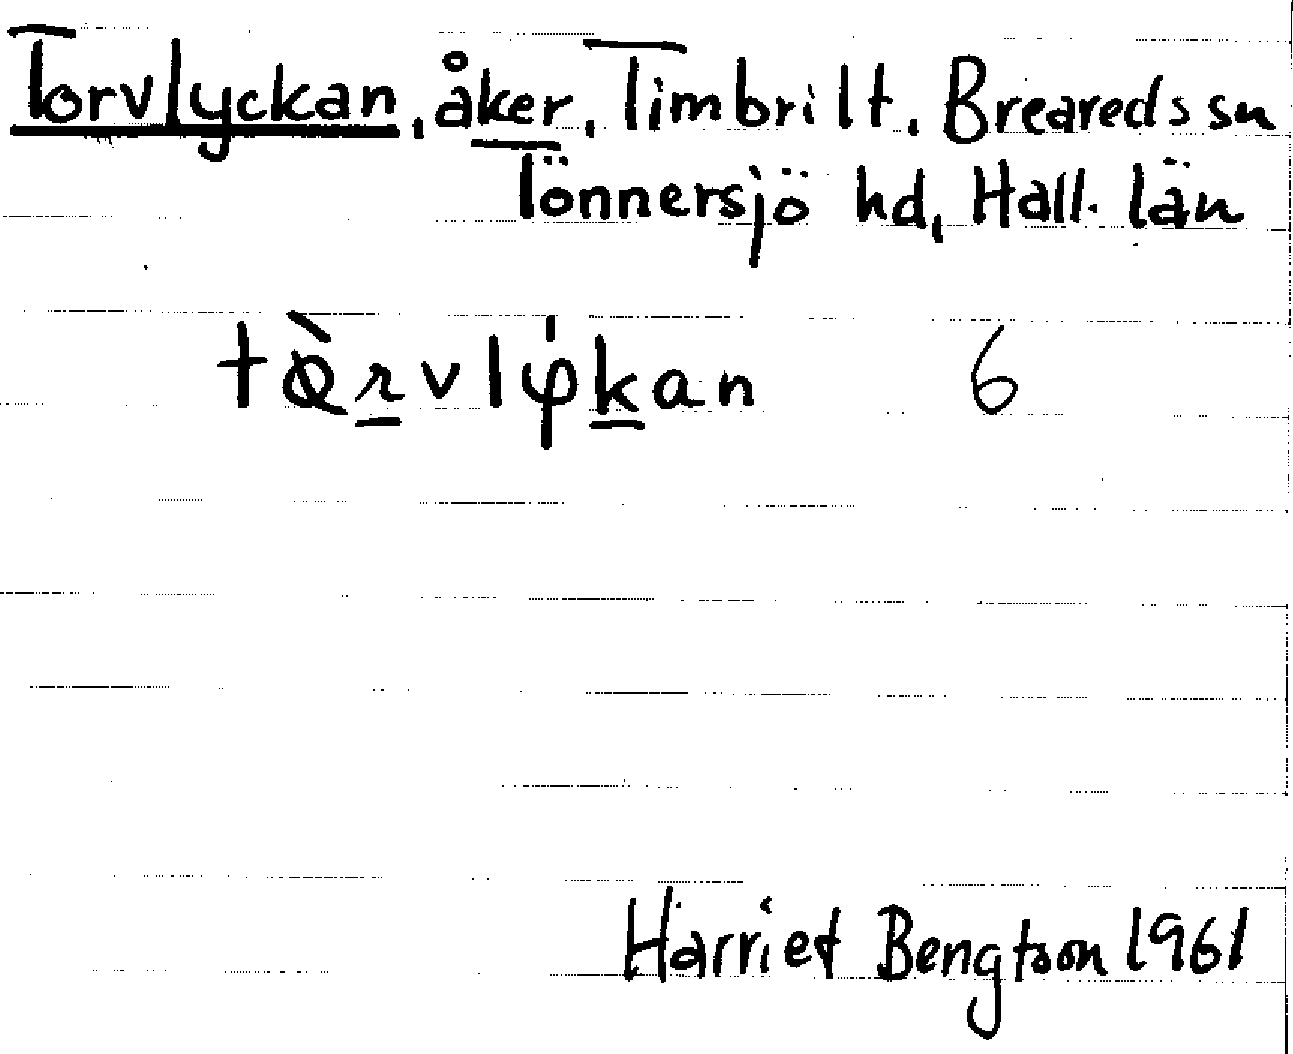 Torvlyckan, åker, Timbrilt, Breareds sn
Tönnersjö hd, Hall. län
6
Harriet Bengtson 1961